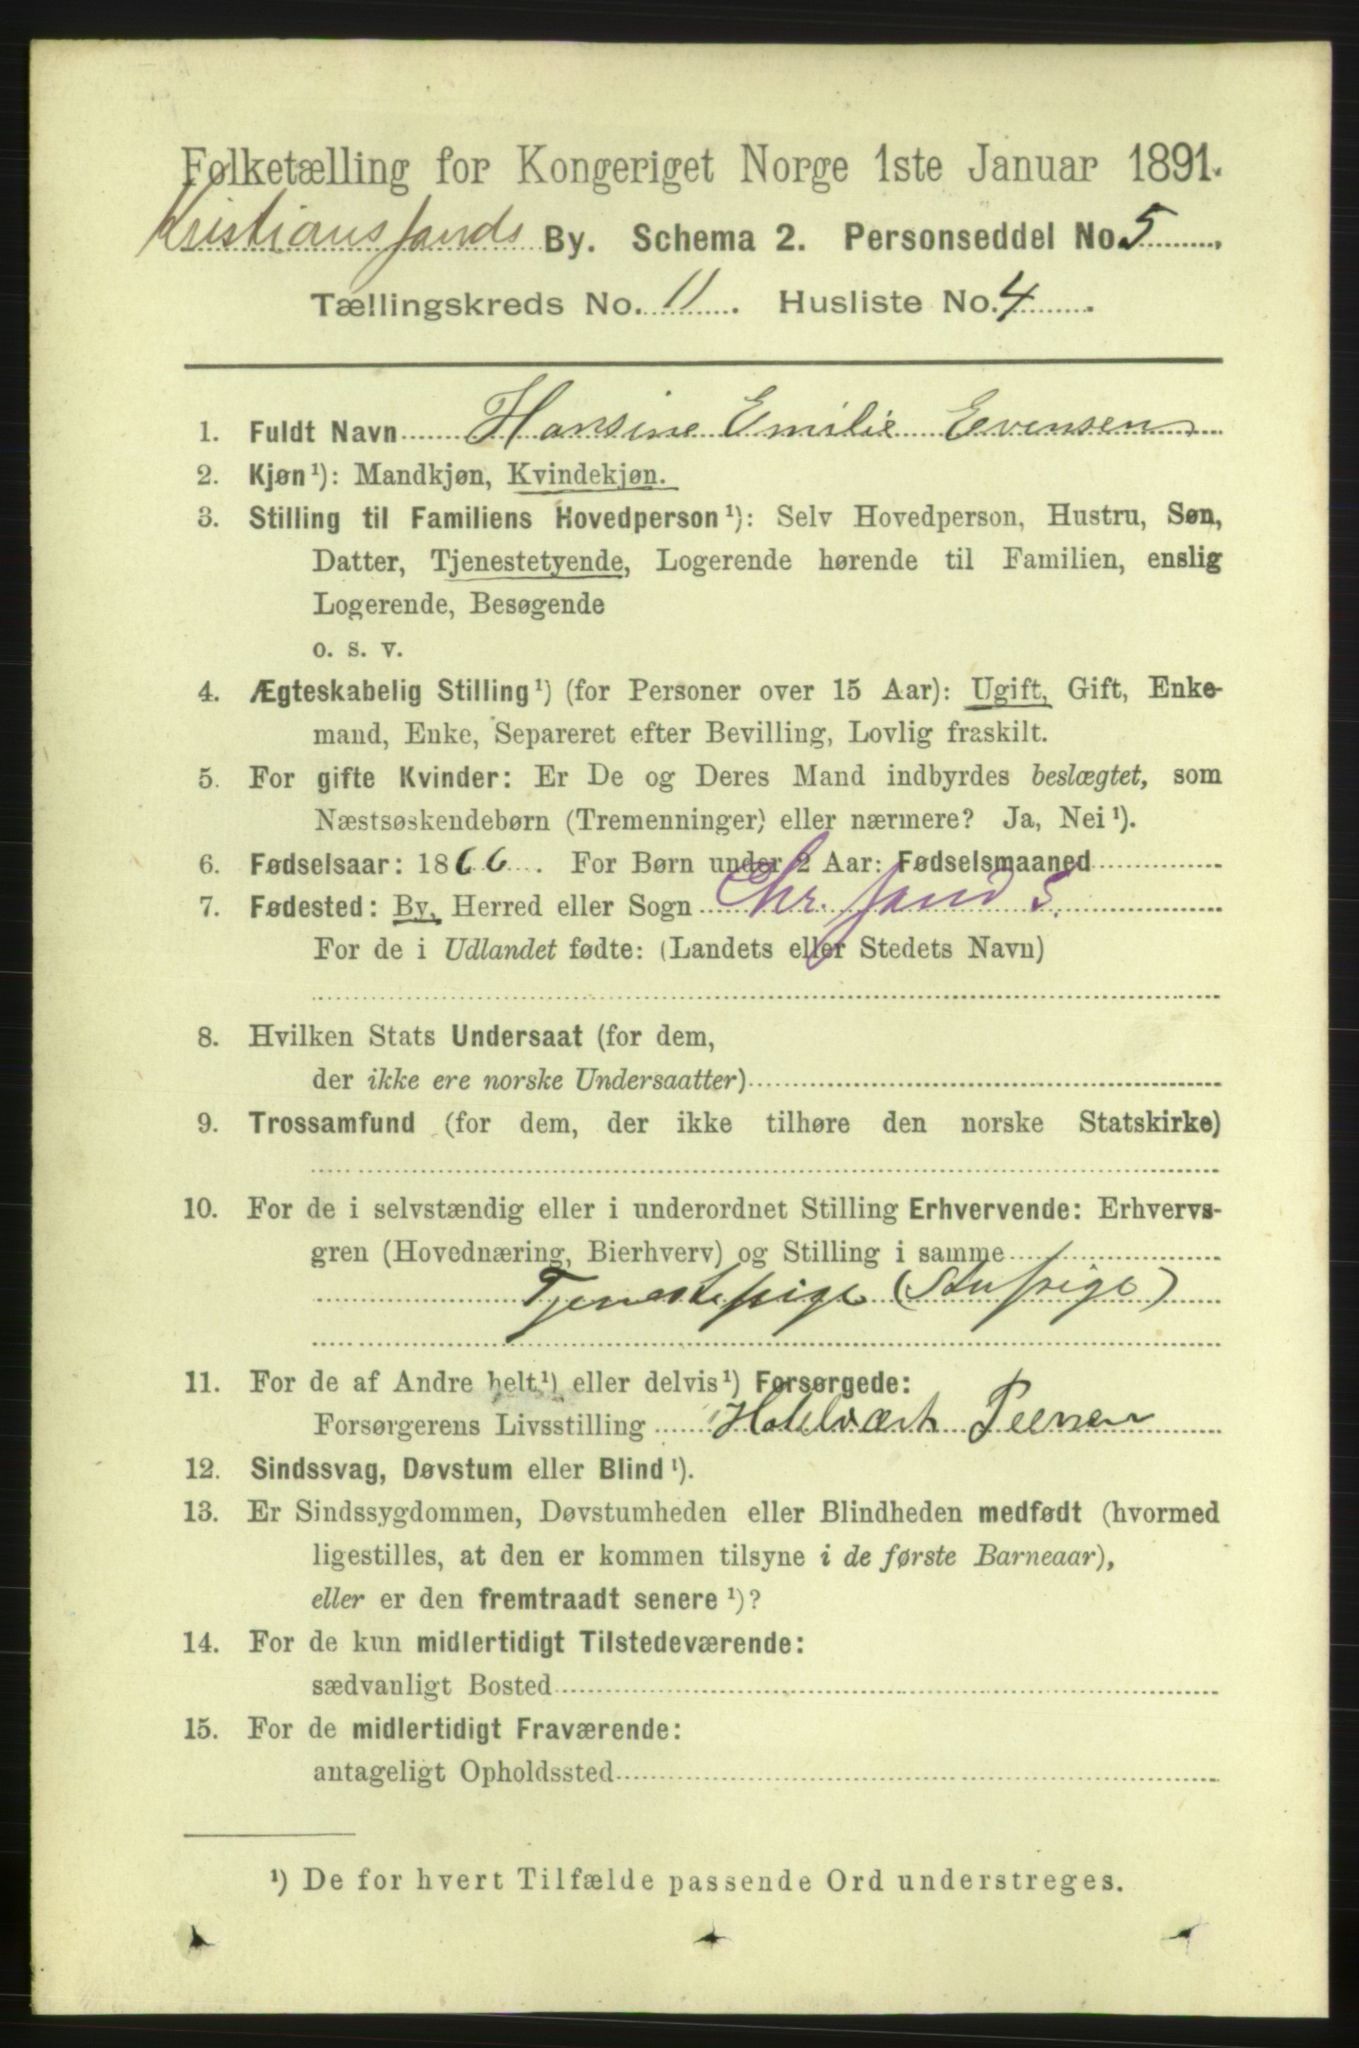 Folketælling for Kongeriget Norge 1ste Januar 1891.
Kristianssands By. Schema 2. Personseddel No. 5
Tællingskreds No. 11. Husliste No. 4.
1. Fuldt Navn Hansine Emilie Evensen
2. Kjøn¹): Mandkjøn, Kvindekjøn.
3. Stilling til Familiens Hovedperson¹): Selv Hovedperson, Hustru, Søn,
Datter, Tjenestetyende, Logerende hørende til Familien, enslig
Logerende, Besøgende
o. s. v.
4. Ægteskabelig Stilling¹) (for Personer over 15 Aar): Ugift, Gift, Enke-
mand, Enke, Separeret efter Bevilling, Lovlig fraskilt.
5. For gifte Kvinder: Er De og Deres Mand indbyrdes beslægtet, som
Næstsøskendebørn (Tremenninger) eller nærmere? Ja, Nei¹).
6. Fødselsaar: 1866. For Børn under 2 Aar: Fødselsmaaned
7. Fødested: By, Herred eller Sogn Chr.sand S.
For de i Udlandet fødte: (Landets eller Stedets Navn)
8. Hvilken Stats Undersaat (for dem,
der ikke ere norske Undersaatter)
9. Trossamfund (for dem, der ikke tilhøre den norske Statskirke)
10. For de i selvstændig eller i underordnet Stilling Erhvervende: Erhvervs-
gren (Hovednæring, Bierhverv) og Stilling i samme
Tjenestepige (Stuepige)
11. For de af Andre helt¹) eller delvis¹) Forsørgede:
Forsørgerens Livsstilling Hotelvært
12. Sindssvag, Døvstum eller Blind¹).
13. Er Sindssygdommen, Døvstumheden eller Blindheden medfødt (hvormed
ligestilles, at den er kommen tilsyne i de første Barneaar),
eller er den fremtraadt senere¹)?
14. For de kun midlertidigt Tilstedeværende:
sædvanligt Bosted
15. For de midlertidigt Fraværende:
antageligt Opholdssted
¹) De for hvert Tilfælde passende Ord understreges.